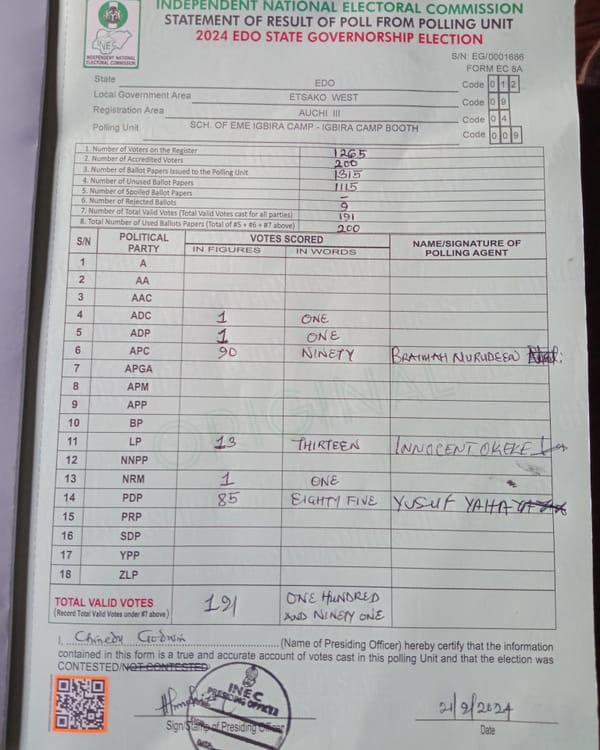 INDEPENDENT NATIONAL ELECTORAL COMMISSION
STATEMENT OF RESULT OF POLL FROM POLLING UNIT
2024 EDO STATE GOVERNORSHIP ELECTION
INEC
INDEPENDENT NATIONAL
ELECTORAL COMMISSION
S/N: EG/0001686
FORM EC 8A
State EDO Code 0 1 2
Local Government Area ETSAKO WEST Code 0 9
Registration Area AUCHI III Code 0 4
Polling Unit SCH. OF EME IGBIRA CAMP - IGBIRA CAMP BOOTH Code 0 0 9
1. Number of Voters on the Register 1265
2. Number of Accredited Voters 200
3. Number of Ballot Papers Issued to the Polling Unit 1315
4. Number of Unused Ballot Papers 1115
5. Number of Spoiled Ballot Papers -
6. Number of Rejected Ballots 9
7. Number of Total Valid Votes (Total Valid Votes cast for all parties) 191
8. Total Number of Used Ballots Papers (Total of #5 + #6 + #7 above) 200
S/N POLITICAL PARTY VOTES SCORED NAME/SIGNATURE OF POLLING AGENT
IN FIGURES IN WORDS
1 A
2 AA
3 AAC
4 ADC 1 ONE
5 ADP 1 ONE
6 APC 90 NINETY BRAIMAH NURUDEEN
7 APGA
8 APM
9 APP
10 BP
11 LP 13 THIRTEEN INNOCENT OKEKE
12 NNPP
13 NRM 1 ONE
14 PDP 85 EIGHTY FIVE YUSUF YAHAYA
15 PRP
16 SDP
17 YPP
18 ZLP
ORIGINAL
TOTAL VALID VOTES 191 ONE HUNDRED
(Record Total Valid Votes under #7 above) AND NINETY ONE
I, Chinedu Godwin (Name of Presiding Officer) hereby certify that the information
contained in this form is a true and accurate account of votes cast in this polling Unit and that the election was
CONTESTED/NOT CONTESTED.
INEC
PRESIDING OFFICER
DATE
Sign/Stamp of Presiding Officer
21/9/2024
Date